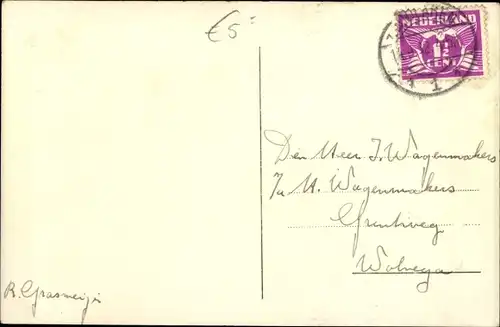 €5
NEDERLAND
1½
CENT
Den Heer J. Wagenmakers
J. Wagenmakers
Wolvega
R. Grasmeijer